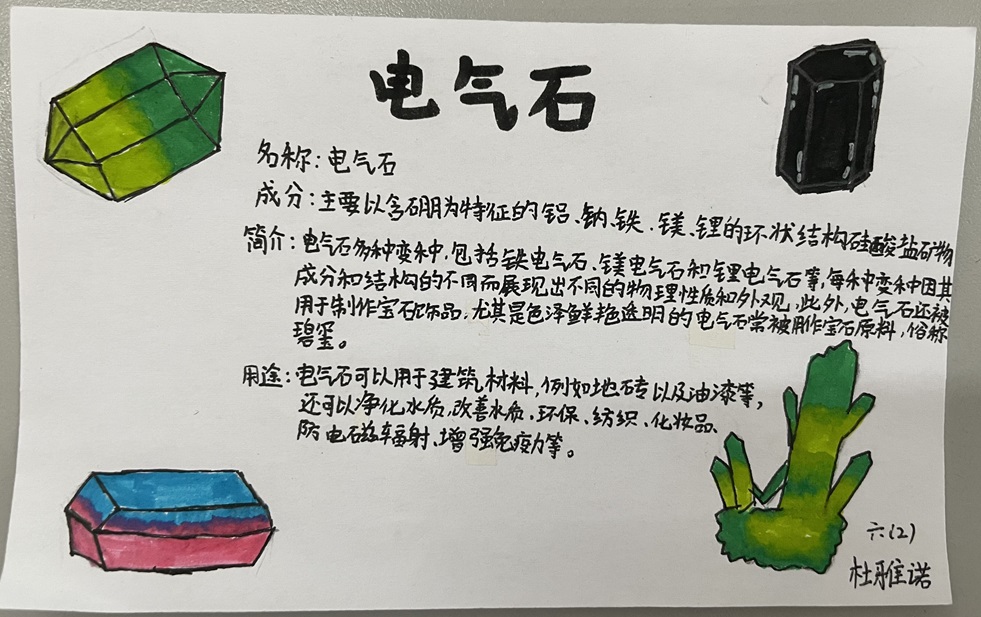 电气石
名称：电气石
成分：主要以含硼为特征的铝、钠、铁、镁、锂的环状结构硅酸盐矿物
简介：电气石多种变种，包括铁电气石、镁电气石和锂电气石等，每种变种因其
成分和结构的不同而展现出不同的物理性质和外观，此外，电气石还被
用于制作宝石饰品，尤其是色泽鲜艳透明的电气石常被用作宝石原料，俗称
碧玺。
用途：电气石可以用于建筑材料，例如地砖以及油漆等，
还可以净化水质，改善水质、环保、纺织、化妆品、
防电磁辐射、增强免疫力等。
六(2)
杜雅诺